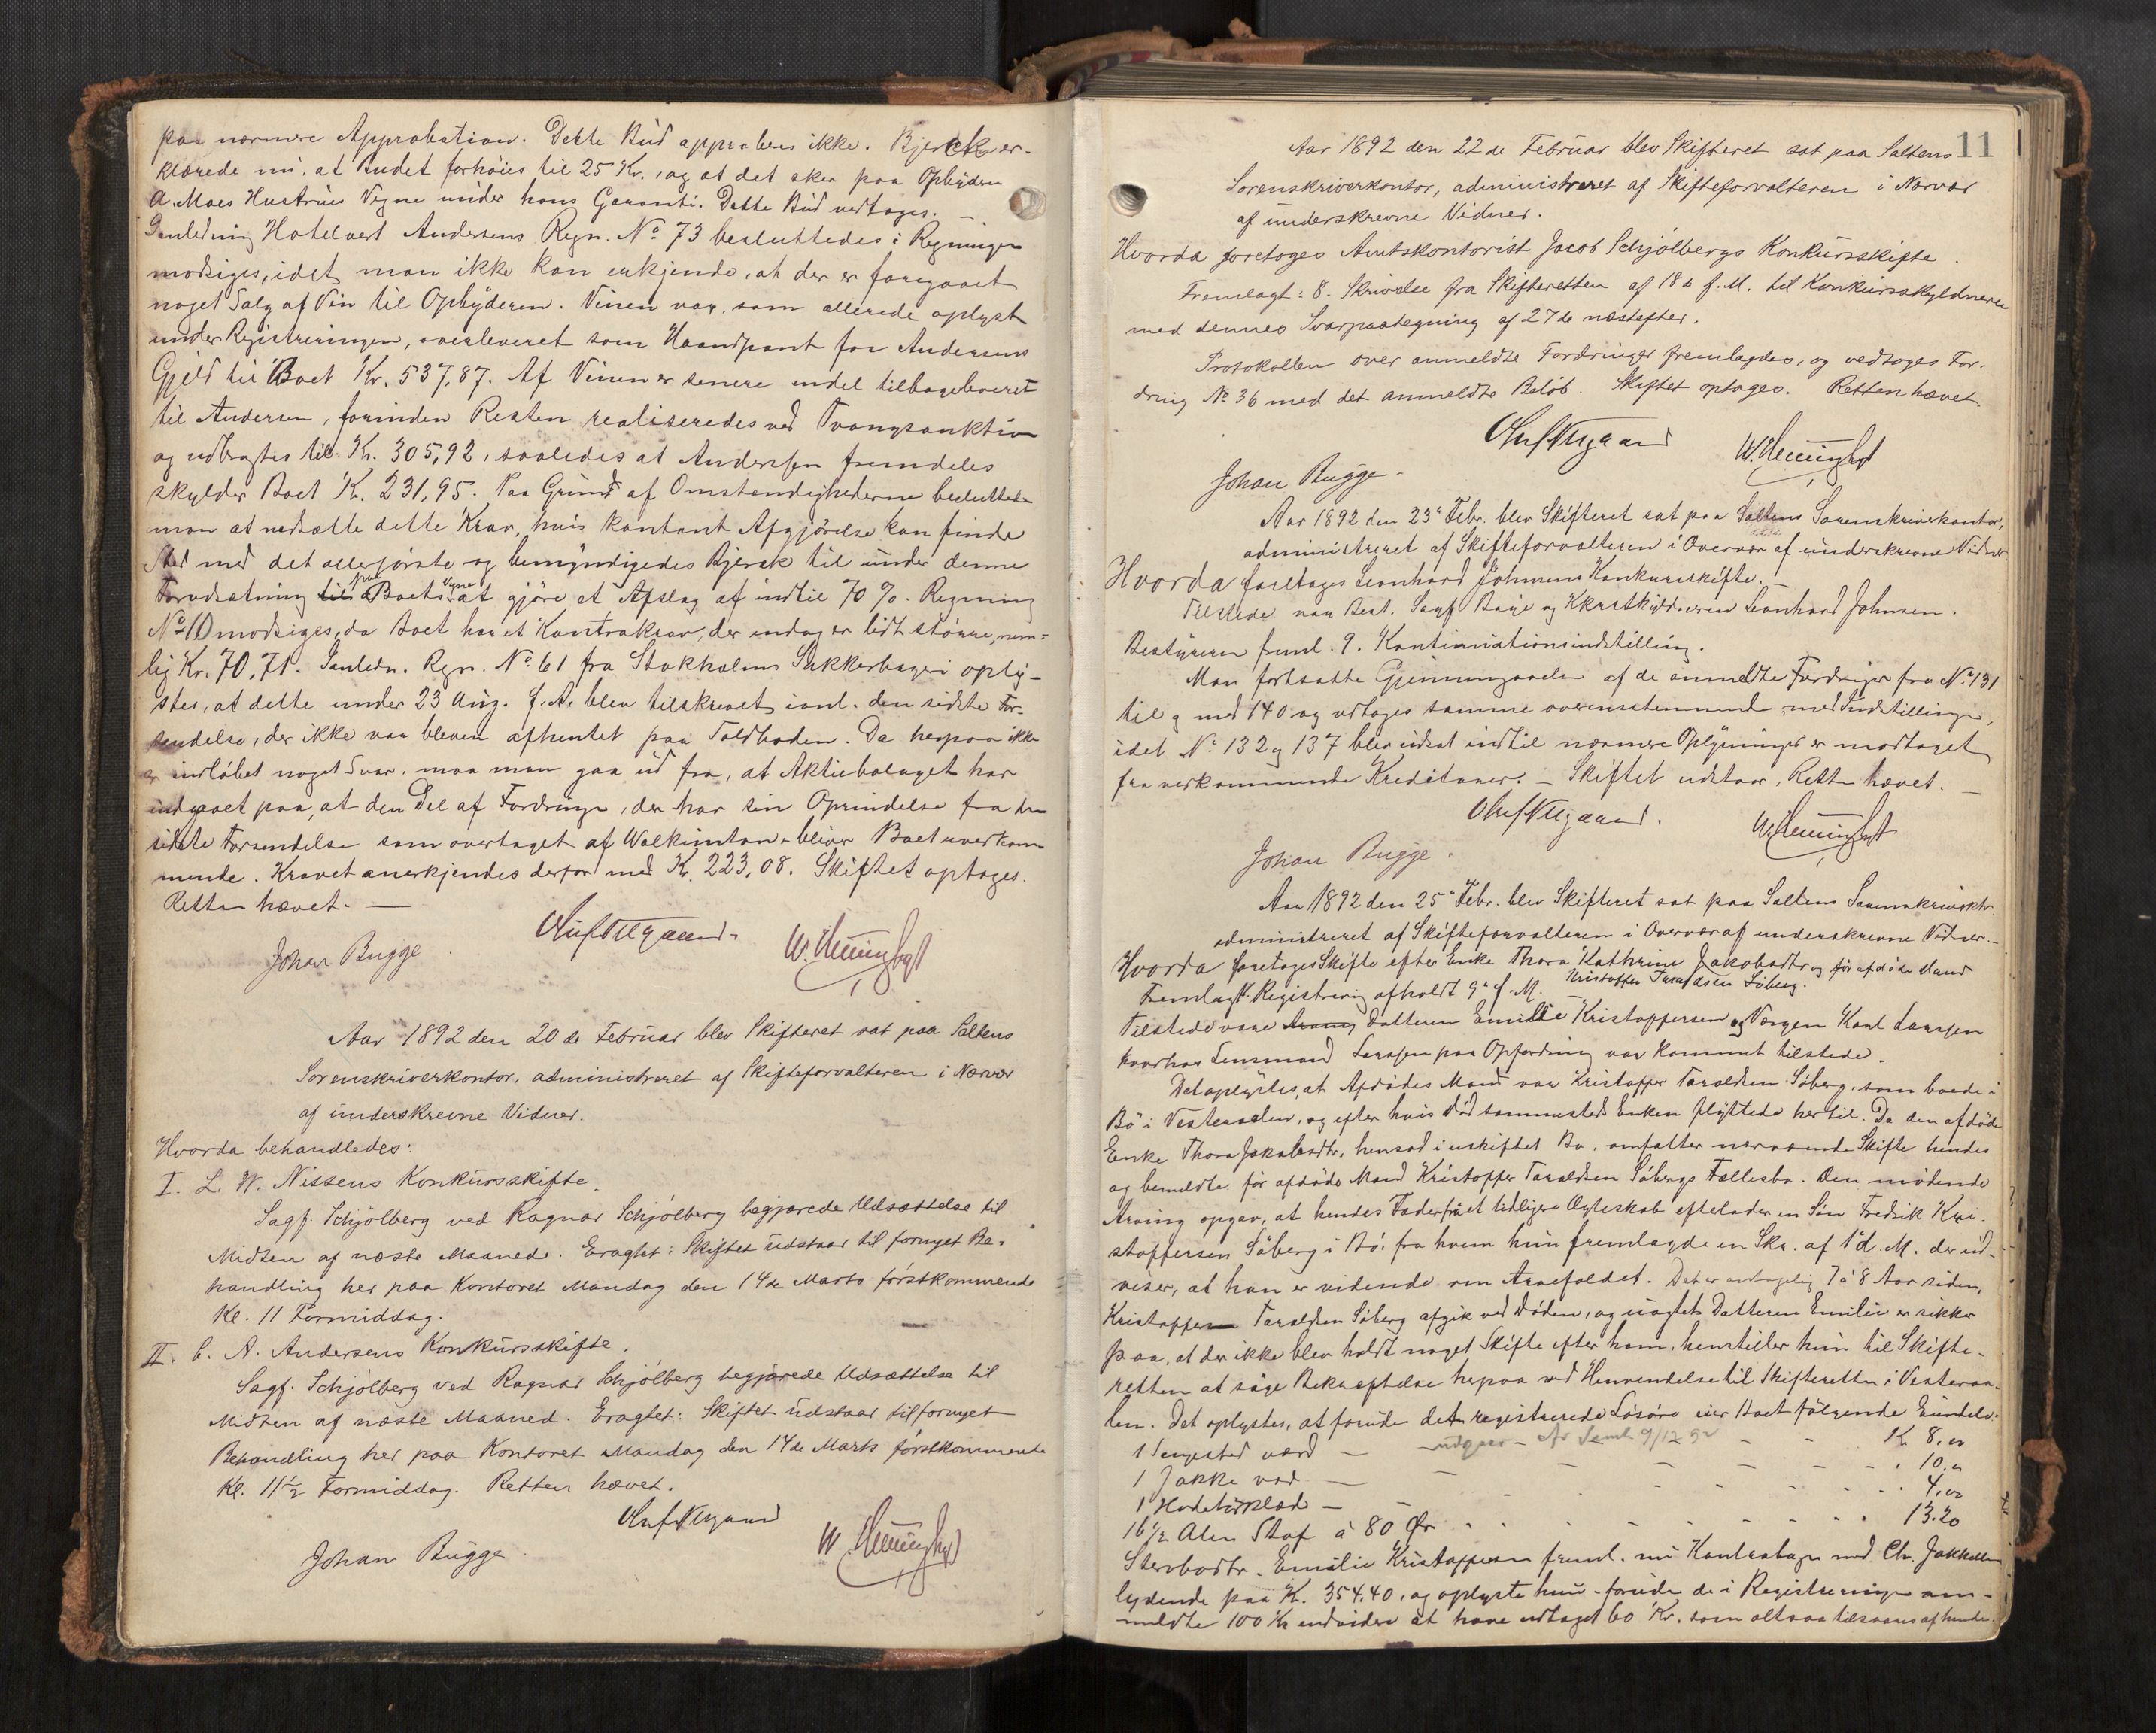 paa nærmere Approbation. Dette Bud approberes ikke. Bjerck er-
klærede nu, at Budet forhøies til 25 Kr., og at det sker paa Opbyderen
A. Moes Hustrues Vegne under hans Garanti. Dette Bud vedtages. —
I anledning Hotelvert Andersens Regn. No 73 besluttedes i Regningen
modsiges, idet man ikke kan erkjende, at der er foregaaet
noget Salg af Vin til Opbyderen. Vinen var, som allerede oplyst
under Registreringen, overleveret som Haandpant for Andersens
Gjeld til Boet Kr. 537,87. Af Vinen er senere endel tilbageleveret
til Andersen, forinden Resten realiseredes ved Tvangsauktion
og udbragtes til Kr. 305,92, saaledes at Andersen fremdeles
skylder Boet Kr. 231,95. Paa Grund af Omstændighederne besluttede
man at nedsætte dette Krav, hvis kontant Afgjörelse kan finde
Sted med det allerførste og bemyndigedes Bjerck til under denne
Forudsætning til paa Boets Vegne at gjöre et Afslag af indtil 70 %. Regning
No 110 modsiges, da Boet har et Kontrakrav, der endog er lidt större, nem-
lig Kr. 70,71. I anledn. Regn. No 61 fra Stokholms Sukkerbageri oply-
stes, at dette under 23 Aug. f. A. blev tilskrevet, ianl. den sidste For-
sendelse, der ikke var bleven afhentet paa Toldboden. Da herpaa ikke
er indløbet noget Svar, maa man gaa ud fra, at Aktiebolaget har
indgaaet paa, at den Del af Fordringen, der har sin Oprindelse fra den
sidste Forsendelse som overtaget af bliver Boet uvedkom-
mende. Kravet anerkjendes derfor med Kr. 223,08. Skiftet optages.
Retten hævet. —
Johan Bugge
Aar 1892 den 20de Februar blev Skifteret sat paa Saltens
Sorenskriverkontor, administreret af Skifteforvalteren i Nærvær
af underskrevne Vidner.
Hvorda behandledes:
I. L. W. Nissens Konkursskifte.
Sagf. Schjølberg ved Ragnar Schjølberg begjærede Udsættelse til
Midten af næste Maaned. Eragtet: Skiftet udstaar til fornyet Be-
handling her paa Kontoret Mandag den 14de Marts førstkommende
Kl. 11 Formiddag.
II. C. A. Andersens Konkursskifte.
Sagf. Schjølberg ved Ragnar Schjølberg begjærede Udsættelse til
Midten af næste Maaned. Eragtet: Skiftet udstaar til fornyet
Behandling her paa Kontoret Mandag den 14de Marts førstkommende
Kl. 11½ Formiddag. Retten hævet.
Johan Bugge
11
Aar 1892 den 22de Februar blev Skifteret sat paa Saltens
Sorenskriverkontor, administreret af Skifteforvalteren i Nærvær
af underskrevne Vidner.
Hvorda foretoges Amtskontorist Jacob Schjølbergs Konkursskifte.
Fremlagt: 8. Skrivelse fra Skifteretten af 18de f. M. til Konkursskyldneren
med dennes Svarpaategning af 27de næstefter.
Protokollen over anmeldte Fordringer fremlagdes, og vedtoges For-
dring No 36 med det anmeldte Beløb. Skiftet optages. Retten hævet.
Johan Bugge
Aar 1892 den 23de Febr. blev Skifteret sat paa Saltens Sorenskriverkontor,
administreret af Skifteforvalteren i Overvær af underskrevne Vidner.
Hvorda foretoges Leonhard Johnsens Konkursskifte. —
Tilstede var Best. Sagf. Bøije og Kkrsskyldneren Leonhard Johnsen.
Bestyreren freml. 9. Kontinuationsindstilling.
Man fortsatte Gjennemgaaelsen af de anmeldte Fordringer fra No 131
til og med 140 og vedtoges samme overensstemmende med Indstillingen,
idet No 132 og 137 blev udsat indtil nærmere Oplysninger er modtaget
fra vedkommende Kreditorer. — Skiftet udstaar, Retten hævet. —
Johan Bugge.
Aar 1892 den 25de Febr. blev Skifteret sat paa Saltens Sorenskriverktr.
administreret af Skifteforvalteren i Overvær af underskrevne Vidner. —
Hvorda foretoges Skifte efter Enke Thora Kathrine Jakobsdtr og før afdøde Mand
Kristoffer Taraldsen Søberg.
Fremlagt: Registrering afholdt 9de f. M.
Tilstede vare Arving Datteren Emilie Kristoffersen og Værgen Karl Larssen
hvorhos Lensmand Larssen paa Opfordring var kommet tilstede.
Det oplystes, at Afdødes Mand var Kristoffer Taraldsen Søberg, som boede i
Bö i Vesteraalen, og efter hvis Död sammesteds Enken flyttede hertil. Da den afdöde
Enke Thora Jakobsdtr. hensad i uskiftet Bo, omfatter nærværende Skifte hendes
og bemeldte før afdøde Mand Kristoffer Taraldsen Søbergs Fællesbo. Den mødende
Arving opgav, at hendes Fader fra et tidligere Ægteskab efterlader en Søn Fredrik Kri-
stoffersen Søberg i Bö, fra hvem hun fremlagde en Skr. af 1 d. M. der ud-
viser, at han er vidende om Arvefaldet. Det er antagelig 7 à 8 Aar siden,
Kristoffer Taraldsen Søberg afgik ved Døden, og uagtet Datteren Emilie er sikker
paa, at der ikke blev holdt noget Skifte efter ham, henstiller hun til Skifte-
retten at søge Bekræftelse herpaa ved Henvendelse til Skifteretten i Vesteraa-
len. Det oplystes, at foruden det registrerede Løsøre eier Boet følgende Eiendele:
1 Sengested værd — udgaar - Kr. 8,00
1 Jakke værd — 10,00
1 Hodetörklæd — 4,00
16½ Alen Stof á 80 Øre 13.20
Stervbodtr. Emilie Kristoffersen freml. nu Kontrabog med Ch. Jakhelln
lydende paa Kr. 354,40, og oplyste hun foruden de i Registreringen an-
meldte 100 Kr endvidere at have udtaget 60 Kr. som altsaa tilsvares af hende.